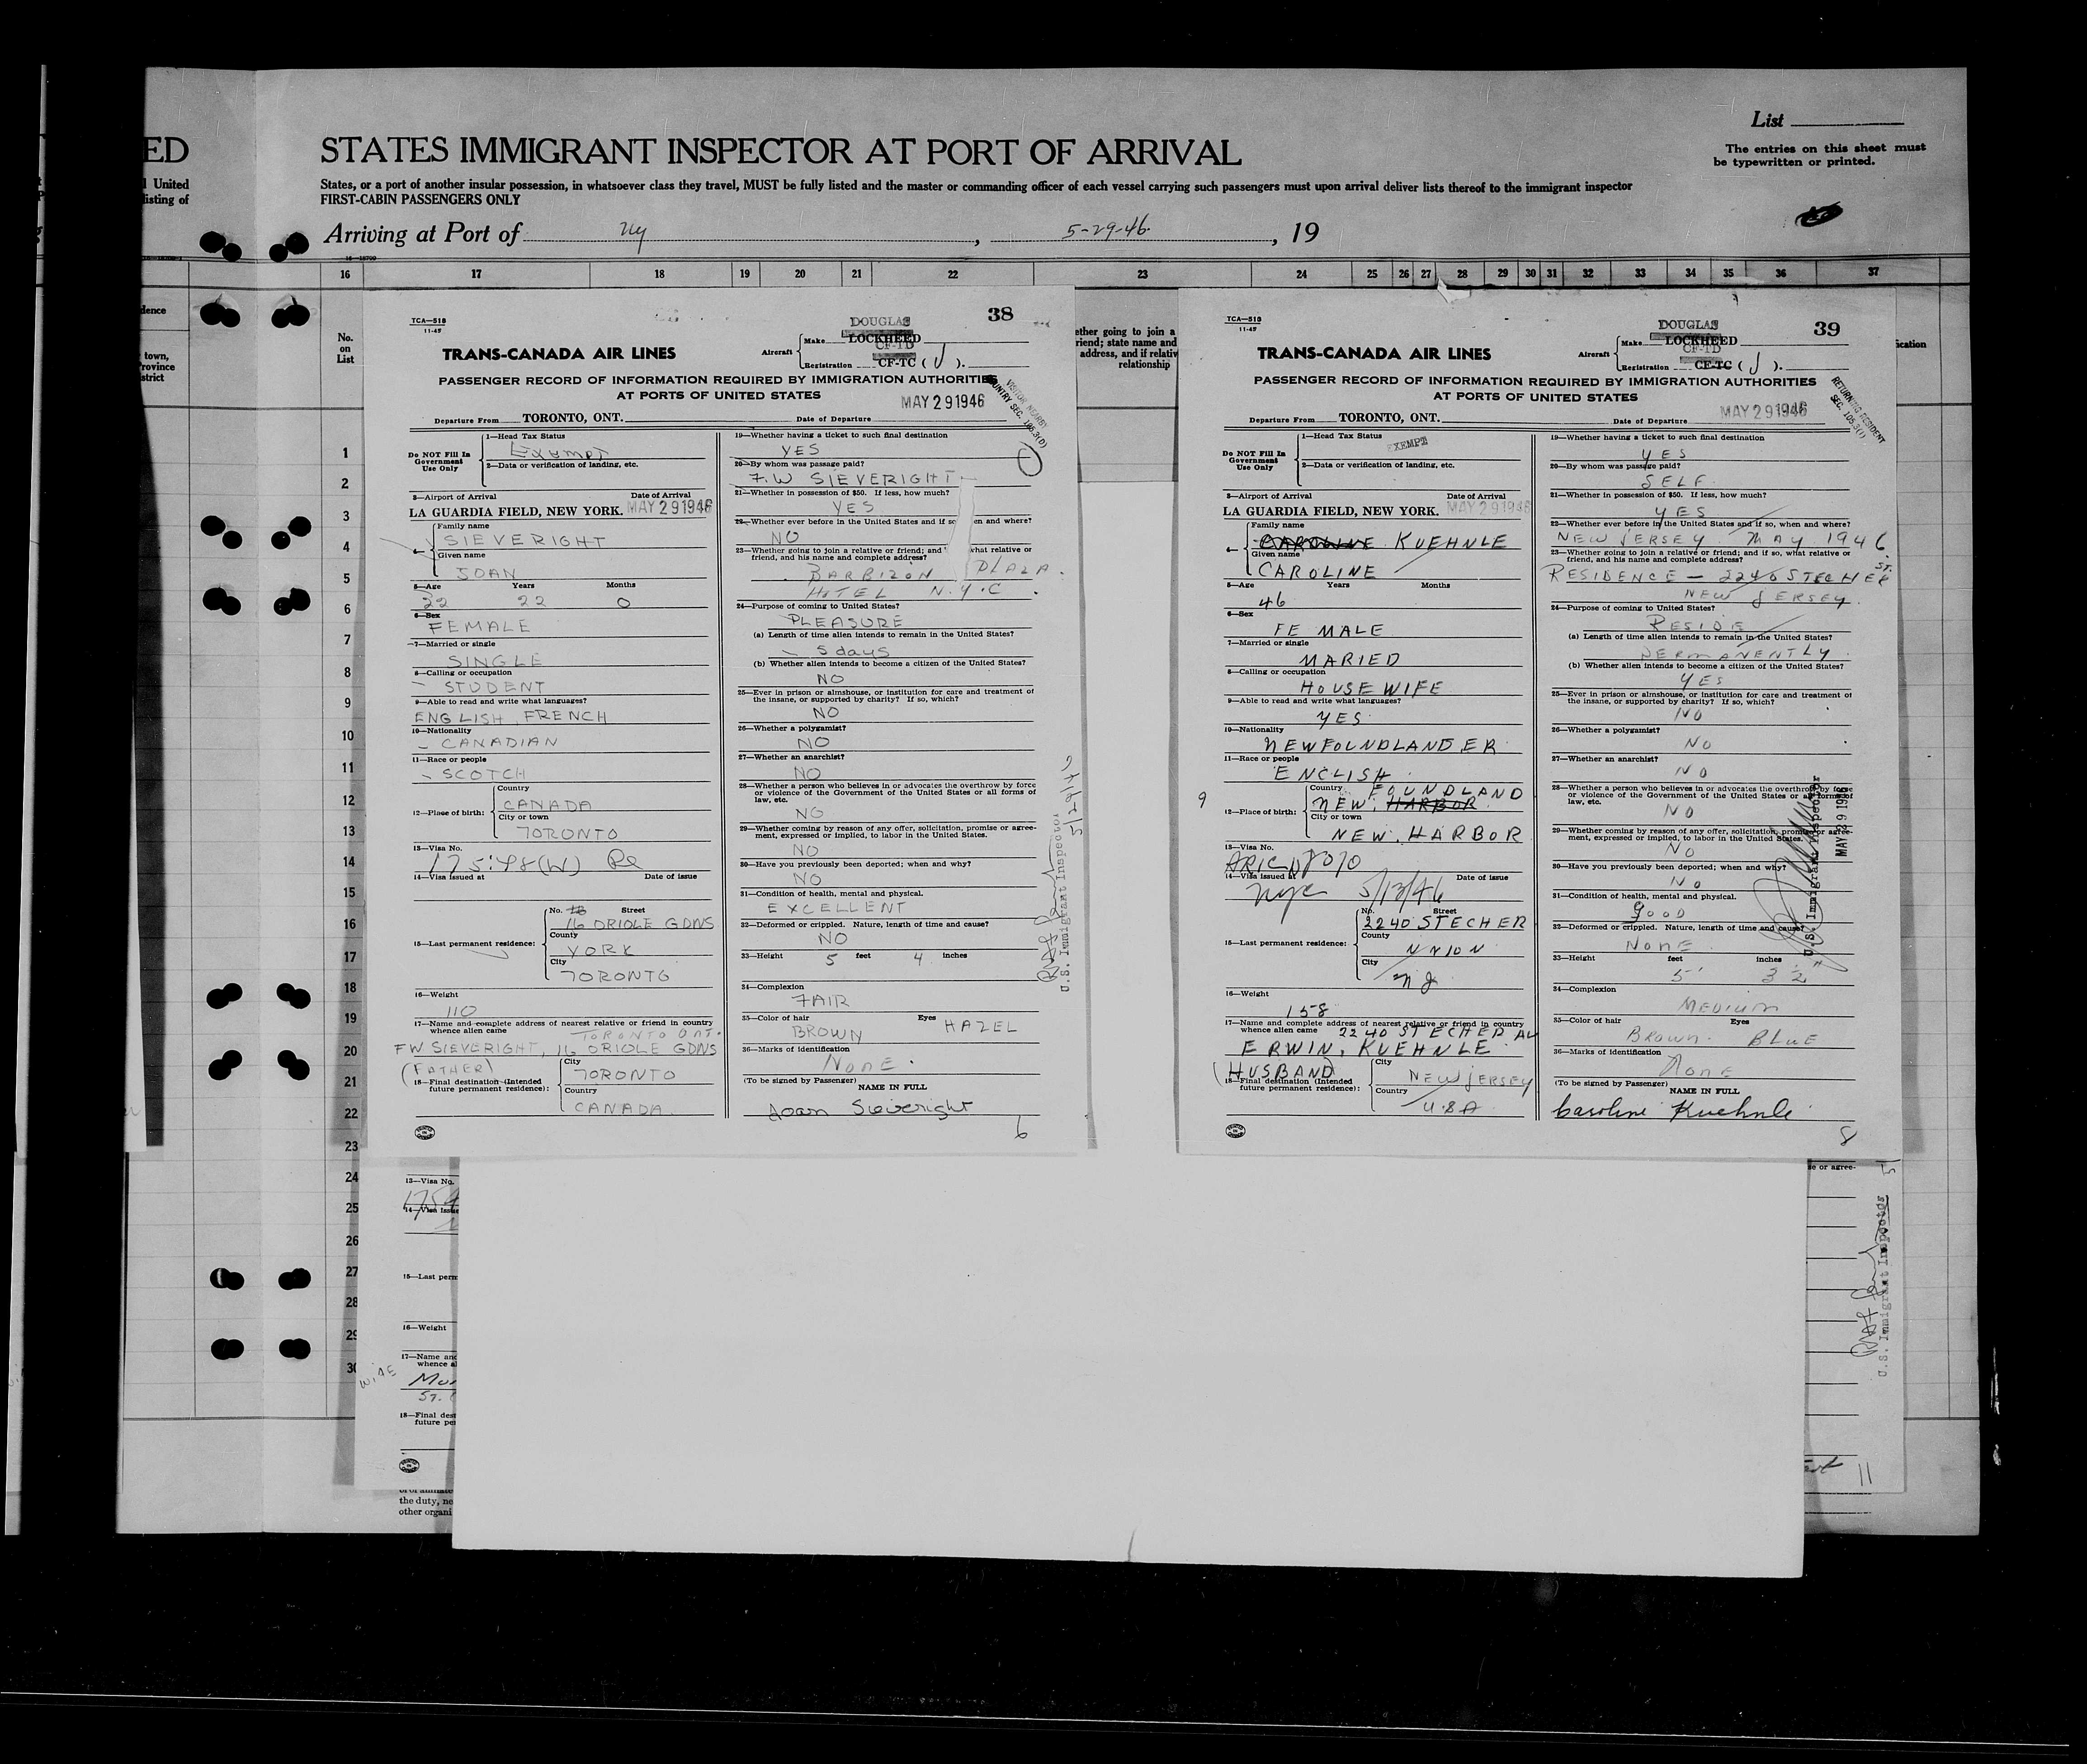 ED
l United
listing of
STATES IMMIGRANT INSPECTOR AT PORT OF ARRIVAL
States, or a port of another insular possession, in whatsoever class they travel, MUST be fully listed and the master or commanding officer of each vessel carrying such passengers must upon arrival deliver lists thereof to the immigrant inspector
FIRST-CABIN PASSENGERS ONLY
List
The entries on this sheet must
be typewritten or printed.
Arriving at Port of NY, 5-29-46, 19
16 17 18 19 20 21 22 23 24 25 26 27 28 29 30 31 32 33 34 35 36 37
dence
town,
rovince
strict
No.
on
List
ether going to join a
riend; state name and
address, and if relativ
relationship
ication
1
2
3
4
5
6
7
8
9
10
11
12
13
14
15
16
17
18
19
20
21
22
23
24
25
26
27
28
29
30
TCA-518
11-45
38
DOUGLAS
Make LOCKHEED
CF-TD
Aircraft
Registration CF-TC (J).
TRANS-CANADA AIR LINES
PASSENGER RECORD OF INFORMATION REQUIRED BY IMMIGRATION AUTHORITIES
AT PORTS OF UNITED STATES
MAY 29 1946
VISITOR NEARBY
COUNTRY SEC. 105.3(0)
Departure From TORONTO, ONT. Date of Departure
Do NOT Fill In
Government
Use Only
1—Head Tax Status
Exempt
2—Data or verification of landing, etc.
3—Airport of Arrival Date of Arrival
LA GUARDIA FIELD, NEW YORK. MAY 29 1946
Family name
SIEVERIGHT
Given name
JOAN
5—Age Years Months
22 22 0
6—Sex
FEMALE
7—Married or single
SINGLE
8—Calling or occupation
STUDENT
9—Able to read and write what languages?
ENGLISH FRENCH
10—Nationality
CANADIAN
11—Race or people
SCOTCH
12—Place of birth:
Country
CANADA
City or town
TORONTO
13—Visa No.
175:48(W)
14—Visa issued at Date of issue
15—Last permanent residence:
No. 16 Street
16 ORIOLE GDNS
County
YORK
City
TORONTO
16—Weight
110
17—Name and complete address of nearest relative or friend in country
whence alien came TORONTO ONT.
FW SIEVERIGHT, 16 ORIOLE GDNS
(FATHER)
18—Final destination (Intended
future permanent residence):
City
TORONTO
Country
CANADA
19—Whether having a ticket to such final destination
YES
20—By whom was passage paid?
F.W SIEVERIGHT
21—Whether in possession of $50. If less, how much?
YES
22—Whether ever before in the United States and if so en and where?
NO
23—Whether going to join a relative or friend; and what relative or
friend, and his name and complete address?
BARBIZON PLAZA
HOTEL N.Y.C.
24—Purpose of coming to United States?
PLEASURE
(a) Length of time alien intends to remain in the United States?
5 days
(b) Whether alien intends to become a citizen of the United States?
NO
25—Ever in prison or almshouse, or institution for care and treatment of
the insane, or supported by charity? If so, which?
NO
26—Whether a polygamist?
NO
27—Whether an anarchist?
NO
28—Whether a person who believes in or advocates the overthrow by force
or violence of the Government of the United States or all forms of
law, etc.
NO
29—Whether coming by reason of any offer, solicitation, promise or agree-
ment, expressed or implied, to labor in the United States.
NO
30—Have you previously been deported; when and why?
NO
31—Condition of health, mental and physical.
EXCELLENT
32—Deformed or crippled. Nature, length of time and cause?
NO
33—Height 5 feet 4 inches
34—Complexion
FAIR
35—Color of hair Eyes
BROWN HAZEL
36—Marks of identification
NONE
(To be signed by Passenger) NAME IN FULL
Joan Sieveright
6
U.S. Immigrant Inspector
5/29/46
TCA-518
11-45
39
DOUGLAS
Make LOCKHEED
CF-TD
Aircraft
Registration CF-TC (J).
TRANS-CANADA AIR LINES
PASSENGER RECORD OF INFORMATION REQUIRED BY IMMIGRATION AUTHORITIES
AT PORTS OF UNITED STATES
MAY 29 1946
RETURNING RESIDENT
SEC. 105.3(1)
Departure From TORONTO, ONT. Date of Departure
Do NOT Fill In
Government
Use Only
1—Head Tax Status
EXEMPT
2—Data or verification of landing, etc.
3—Airport of Arrival Date of Arrival
LA GUARDIA FIELD, NEW YORK. MAY 29 1946
Family name
CAROLINE KUEHNLE
Given name
CAROLINE
5—Age Years Months
46
6—Sex
FE MALE
7—Married or single
MARIED
8—Calling or occupation
HOUSE WIFE
9—Able to read and write what languages?
YES
10—Nationality
NEWFOUNDLANDER
11—Race or people
ENGLISH
9
12—Place of birth:
Country FOUNDLAND
NEW HARBOR
City or town
NEW. HARBOR
13—Visa No.
14—Visa issued at Date of issue
NYC 5/13/46
15—Last permanent residence:
No. Street
2240 STECHER
County
UNION
City
NJ
16—Weight
158
17—Name and complete address of nearest relative or friend in country
whence alien came 2240 STECHER AV
ERWIN, KUEHNLE
(HUSBAND)
18—Final destination (Intended
future permanent residence):
City
NEW JERSEY
Country
U.S.A
19—Whether having a ticket to such final destination
YES
20—By whom was passage paid?
SELF
21—Whether in possession of $50. If less, how much?
YES
22—Whether ever before in the United States and if so, when and where?
NEW JERSEY MAY 1946
23—Whether going to join a relative or friend; and if so, what relative or
friend, and his name and complete address?
RESIDENCE — 2240 STECHER ST.
NEW JERSEY.
24—Purpose of coming to United States?
RESIDE
(a) Length of time alien intends to remain in the United States?
PERMANENTLY
(b) Whether alien intends to become a citizen of the United States?
YES
25—Ever in prison or almshouse, or institution for care and treatment of
the insane, or supported by charity? If so, which?
NO
26—Whether a polygamist?
NO
27—Whether an anarchist?
NO
28—Whether a person who believes in or advocates the overthrow by force
or violence of the Government of the United States or all forms of
law, etc.
NO
29—Whether coming by reason of any offer, solicitation, promise or agree-
ment, expressed or implied, to labor in the United States.
NO
30—Have you previously been deported; when and why?
NO
31—Condition of health, mental and physical.
GOOD
32—Deformed or crippled. Nature, length of time and cause?
NONE
33—Height feet inches
5' 3 1/2"
34—Complexion
MEDIUM
35—Color of hair Eyes
BROWN. BLUE
36—Marks of identification
NONE
(To be signed by Passenger) NAME IN FULL
Caroline Kuehnle
8
U.S. Immigrant Inspector
MAY 29 1946
13—Visa No.
14—Visa issue
15—Last perm
16—Weight
17—Name and
whence al
WIFE
ST.
18—Final dest
future per
the duty, ne
other organi
se or agree-
U.S. Immigrant Inspector
11